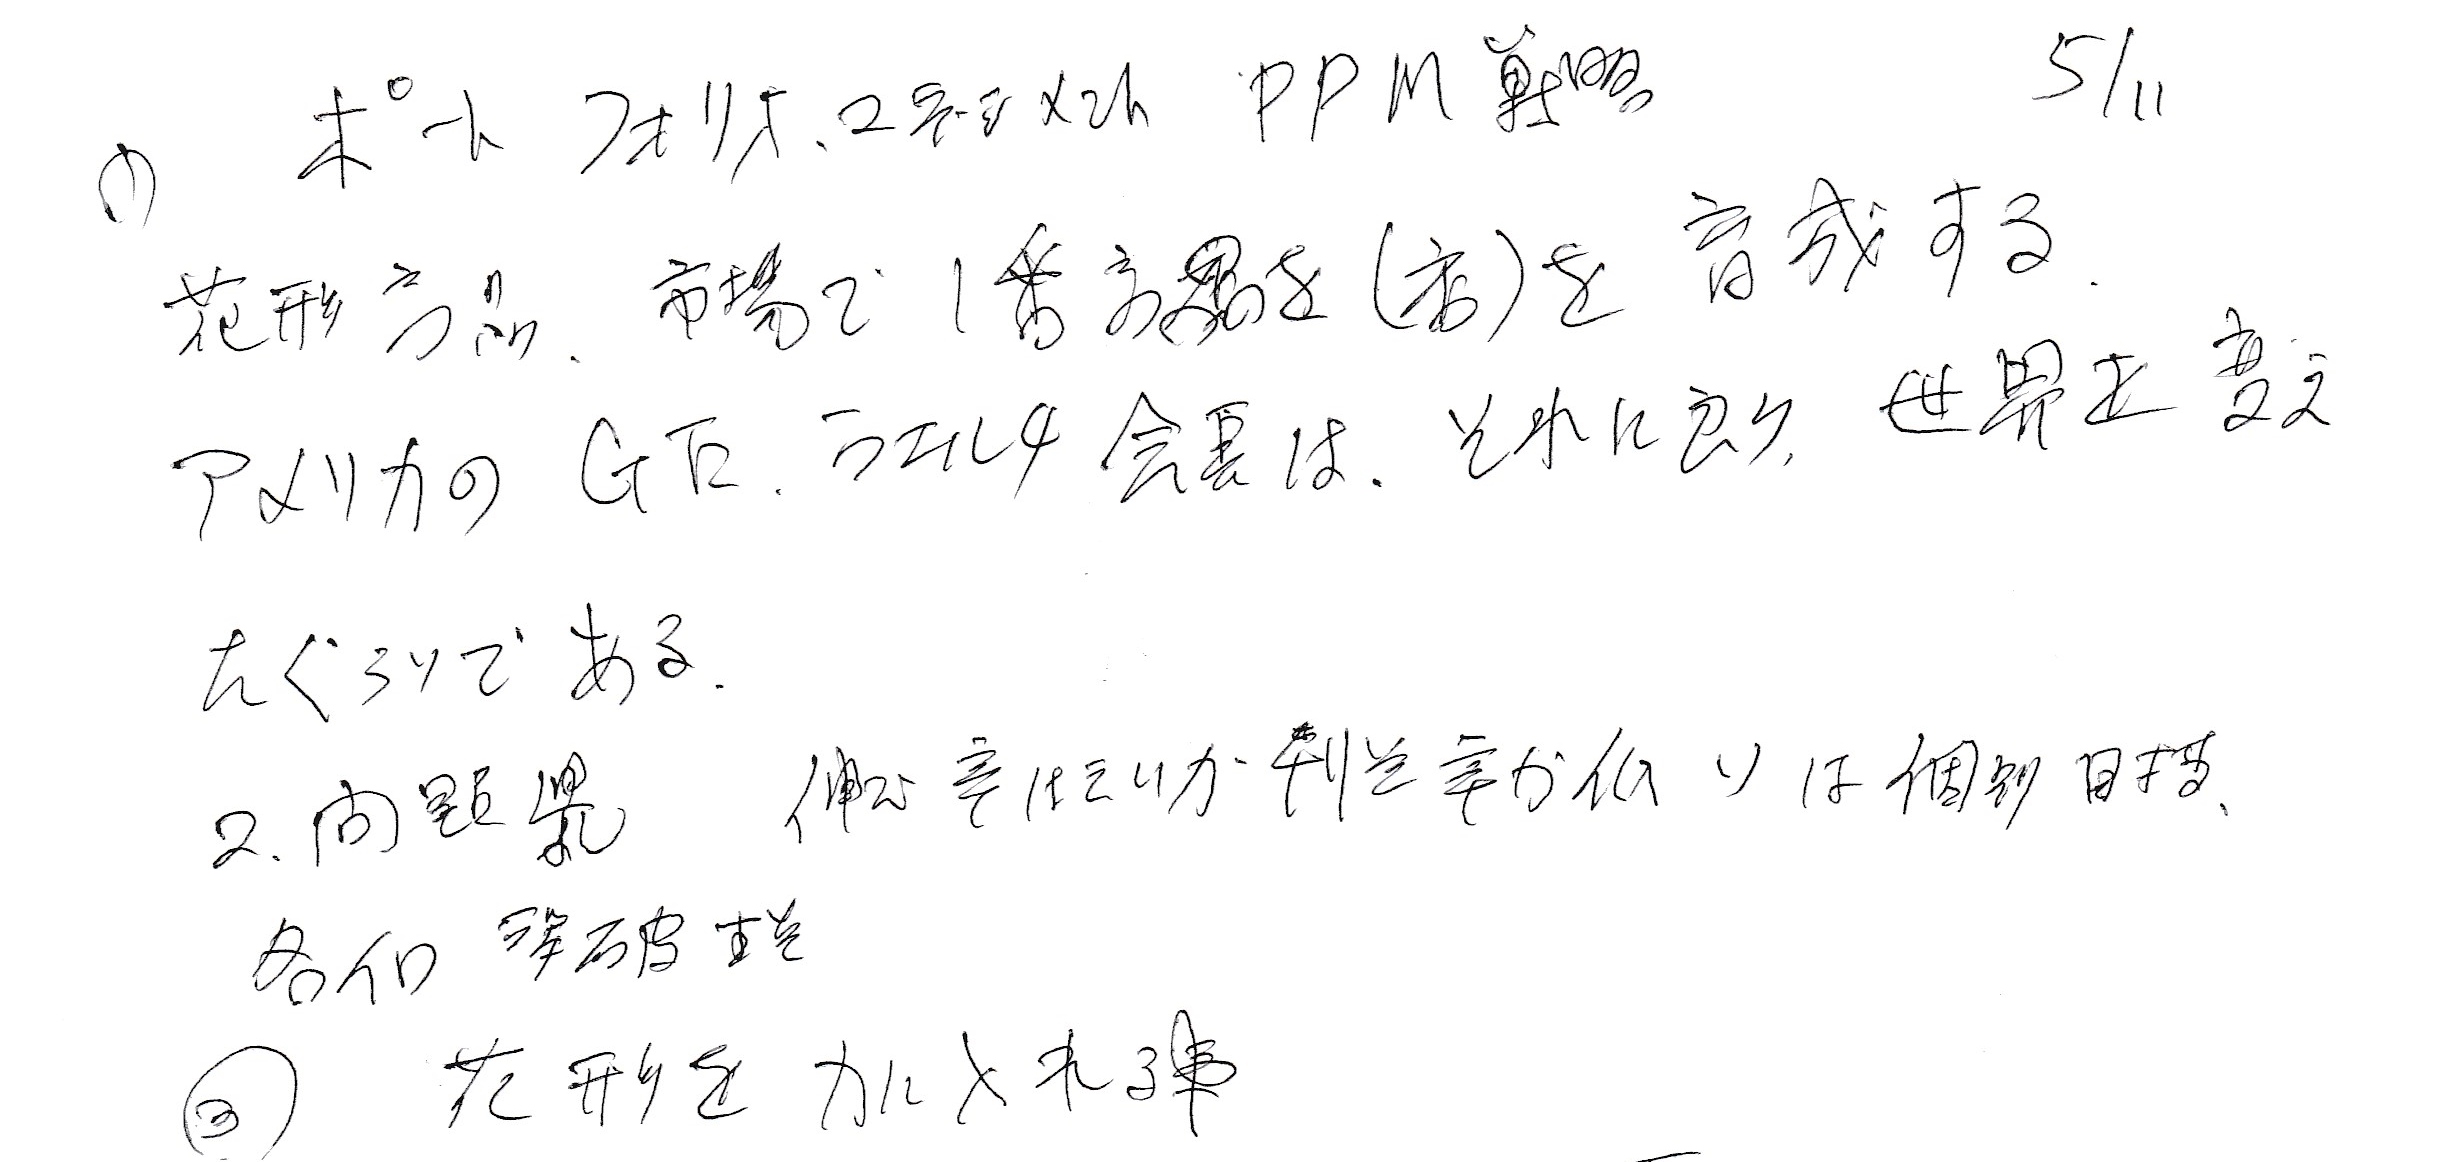 ポートフォリオ.マネジメント PPM戦略 5/11
(1)
花形商品. 市場で1番商品を(店)を育成する.
アメリカのGE. ウエルチ会長は. それに良り. 世界を変え
たぐらいである.
2. 問題児 伸び率は高いが利益率が低いは個別目標、
各個撃破
③ 花形を力に入れる事